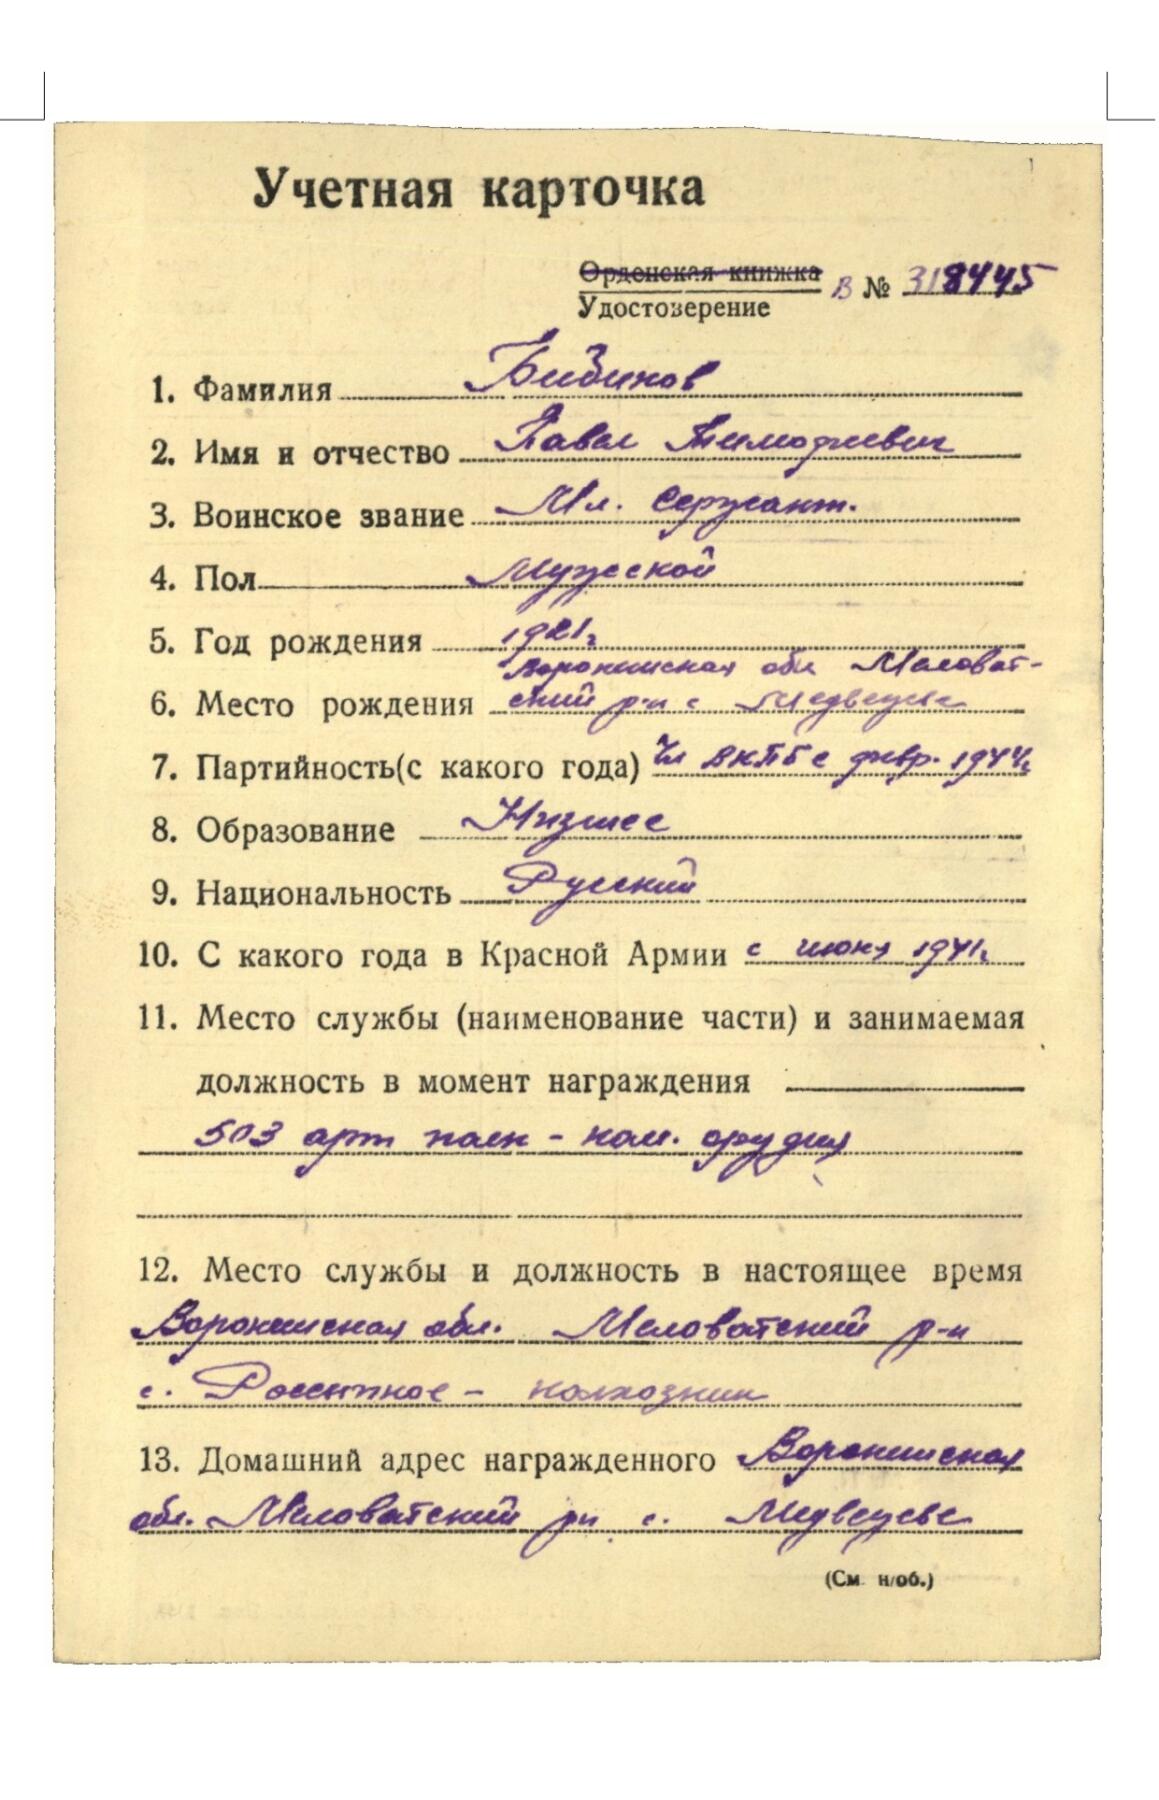 Учетная карточка
Орденская книжка
Удостоверение В № 318445
1. Фамилия Бибиков
2. Имя и отчество Павел Тимофеевич
3. Воинское звание Мл. Сержант.
4. Пол Мужской
5. Год рождения 1921г
Воронежская обл Меловат-
6. Место рождения ский р-н с Медвежье
7. Партийность(с какого года) Чл ВКПБ с февр. 1944г.
8. Образование Низшее
9. Национальность Русский
10. С какого года в Красной Армии с июня 1941г.
11. Место службы (наименование части) и занимаемая
должность в момент награждения
503 арт полк - ком. орудия
12. Место службы и должность в настоящее время
Воронежская обл. Меловатский р-н
с. - колхозник
13. Домашний адрес награжденного Воронежская
обл. Меловатский рн с. Медвежье
(См. н/об.)